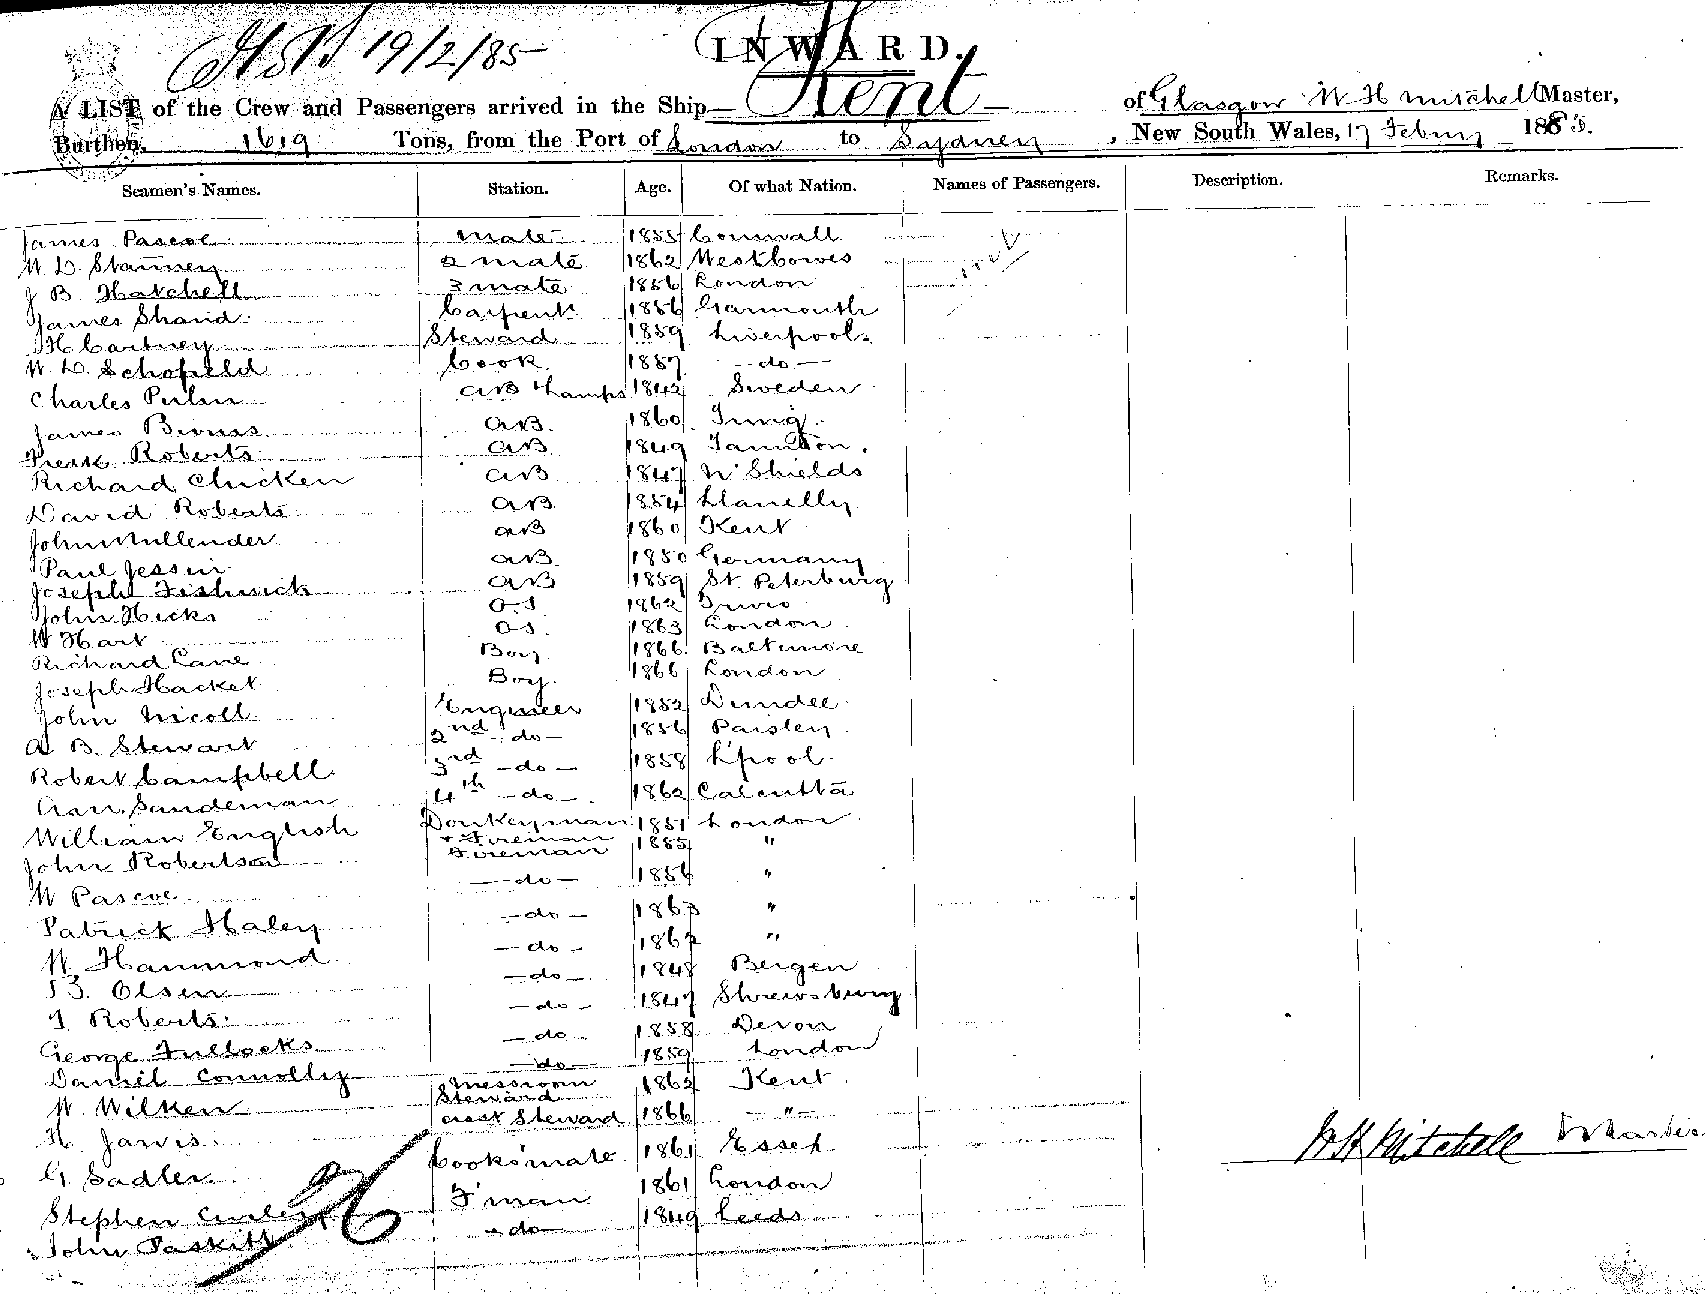 19/2/85 INWARD.
A LIST of the Crew and Passengers arrived in the Ship Kent of Glasgow W H Mitchell Master,
Burthen, 1619 Tons, from the Port of London to Sydney, New South Wales, 17 Feburg 1885.
Seamen's Names. Station. Age. Of what Nation. Names of Passengers. Description. Remarks.
James Pascoe mate 1855 Cornwall
W. D. Stannery 2 mate 1862 Westbowes
J B Hatchell 3 mate 1856 London
James Shand Carpent 1856 Garmouth
H Cartney Steward 1859 Liverpool
W. D. Schofield Cook 1857 -do-
Charles AB Lamps 1842 Sweden
James AB. 1860
Frank Roberts AB 1849 Taunton.
Richard Chicken AB 1847 N Shields
David Roberts AB 1854 Llanelly
John Mullender AB 1860 Kent
Paul Jessin AB 1850 Germany
Joseph Fishwick AB 1859 St. Peterburg
John Hicks O.S 1862
W Hart OS. 1863 London
Richard Cane Boy 1866 Baltimore
Joseph Hacket Boy. 1866 London
John Nicoll Engineer 1852 Dundee
A B. Stewart 2nd -do- 1856 Paisley
Robert Campbell 3rd -do- 1858 L'pool
Sandeman 4th -do- 1862 Calcutta
William English Donkeyman + Fireman 1851 London
John Robertson Fireman 1885 "
W Pascoe -do- 1856 "
Patrick Haley -do- 1863 "
W. Hammond -do- "
B. Olsen -do- 1848 Bergen
T Roberts -do- 1847 Shrewsbury
George Fullocks -do- 1858 Devon
Daniel Connolly -do- 1859 London
W. Wilken Messroom Steward 1862 Kent
H. Jarvis asst Steward 1866 -"-
G. Sadler Cooks mate 1861 Essex
Stephen F'man 1861 London
John Paskitt -do- 1849 Leeds
W H Mitchell Master